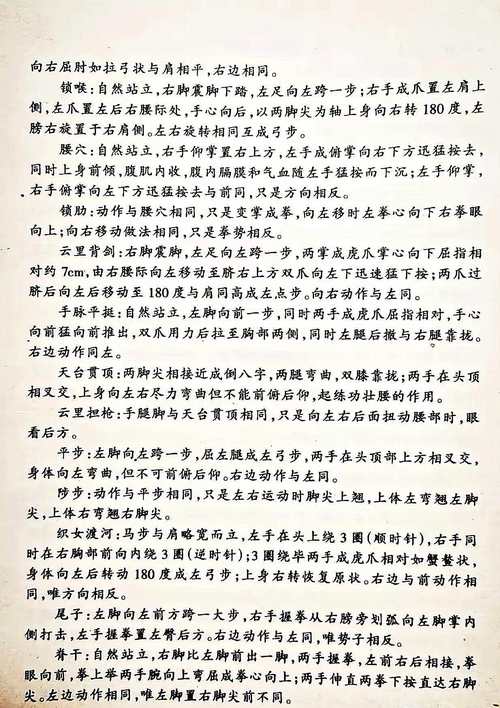 向右屈肘如拉弓状与肩相平,右边相同。
锁喉:自然站立,右脚震脚下踏,左足向左跨一步;右手成爪置左肩上
侧,左爪置左后右腰际处,手心向后,以两脚尖为轴上身向右转180度,左
膀右旋置于右肩侧。左右旋转相同互成弓步。
腰穴:自然站立,右手仰掌置右上方,左手成俯掌向右下方迅猛按去,
同时上身前倾,腹肌内收,腹内膈膜和气血随左手猛按而下沉;左手仰掌,
右手俯掌向左下方迅猛按去与前同,只是方向相反。
锁肋:动作与腰穴相同,只是变掌成拳,向左移时左拳心向下右拳眼
向上;向右移动做法相同,只是拳势相反。
云里背剑:右脚震脚,左足向左跨一步,两掌成虎爪掌心向下屈指相
对约7cm,由右腰际向左移动至脐右上方双爪向左下迅速猛下按;两爪过
脐后向左后移动至180度与肩同高成左点步。向右动作与左同。
手脉平挺:自然站立,左脚向前一步,同时两手成虎爪屈指相对,手心
向前猛向前推出,双爪用力后拉至胸部两侧,同时左腿后撤与右腿靠拢。
右边动作同左。
天台贯顶:两脚尖相接近成倒八字,两腿弯曲,双膝靠拢;两手在头顶
相叉交,上身向左右尽力弯曲但不能前俯后仰,起练功壮腰的作用。
云里担枪:手腿脚与天台贯顶相同,只是向左右后面扭动腰部时,眼
看后方。
平步:左脚向左跨一步,屈左腿成左弓步,两手在头顶部上方相叉交,
身体向左弯曲,但不可前俯后仰。右边动作与左同。
陟步:动作与平步相同,只是左右运动时脚尖上翘,上体左弯翘左脚
尖,上体右弯翘右脚尖。
织女渡河:马步与肩略宽而立,左手在头上绕3圈(顺时针),右手同
时在右胸部前向内绕3圈(逆时针);3圈绕毕两手成虎爪相对如蟹螯状,
身体向左后转动180度成左弓步;上身右转恢复原状。右边与前动作相
同,唯方向相反。
尾子:左脚向左前方跨一大步,右手握拳从右膀旁划弧向左脚掌内
侧打击,左手握拳置左臀后方。右边动作与左同,唯势子相反。
脊干:自然站立,右脚比左脚前出一脚,两手握拳,左前右后相接,拳
眼向前,拳上举两手腕向上弯屈成拳心向上;两手伸直两拳下按直达右脚
尖。左边动作相同,唯左脚置右脚尖前不同。